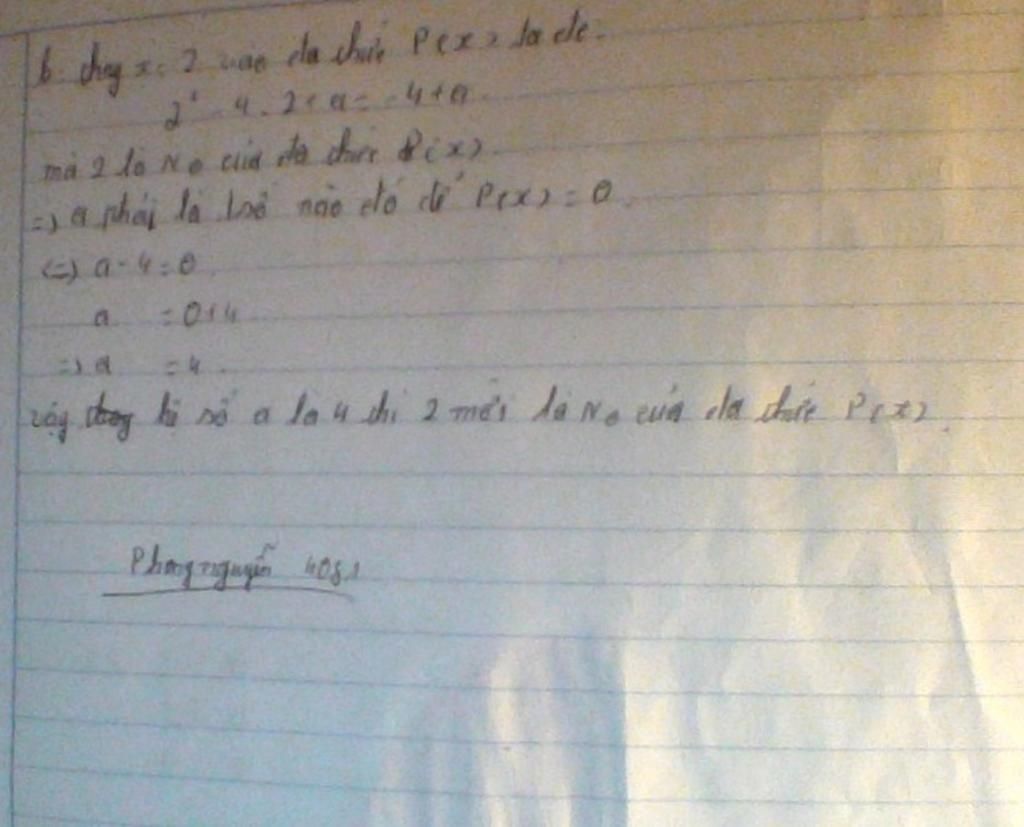 b. thay x = 2 vào đa thức P(x) ta đc.
2² - 4.2 + a = -4 + a
mà 2 là No của đa thức P(x)
=> a phải là 1 số nào đó để P(x) = 0.
<=> a - 4 = 0.
a = 0 + 4
=> a = 4.
vậy hệ số a là 4 thì 2 mới là No của đa thức P(x).
Phongnguyễn